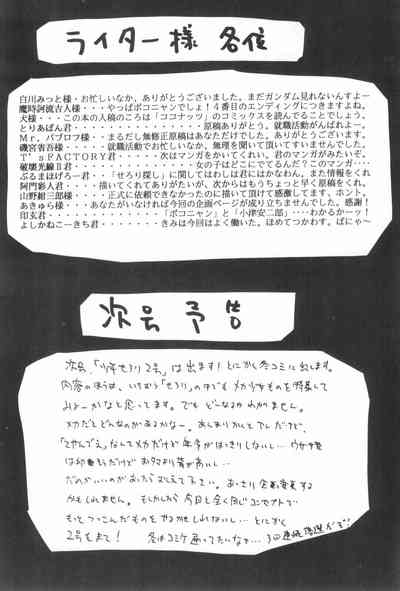 ライター様 各位
白川みっと様・お忙しいなか、ありがとうございました。まだガンダム見れないんすよー
魔時阿流古人様・・・やっぱポコニャンでしょ！4番目のエンディングにつきますよね。
犬様・・・この本の入稿のころは「ココナッツ」のコミックスを読んでることでしょう。
とりあぱん君・・・・・・・・・・・・・・・原稿ありがとう。就職活動がんばれよー。
Mr．パブロフ様・・・まるだし無修正原稿はあなただけでした。ありがとうございます。
磯宮香吾様・・・・・就職活動でお忙しいなか、無理を聞いて頂いてすいませんでした。
T'sFACTORY君・・・・・次はマンガをかいてくれい。君のマンガがみたいぞ。
破壊光線Ⅱ君・・・・・・・・・・・・・女の子はどこにでてるんだ？このマンガ・・・
ぶるまほげろー君・・・「せろり探し」に関してはわしは君にはかなわん。また情報をくれ
阿門彩人君・・・・描いてくれてありがたいが、次からはもうちょっと早く原稿をくれ。
山野紺三郎様・・・・正式に依頼できなかったのに描いて頂けて感激してます。ホント。
あきゅら様・・・あなたがいなければ今回の企画ページが成り立ちませんでした。感謝！
印玄君・・・・・・・・・・・・「ポコニャン」と「小津安二郎」・・・・わかるかーッ！
よしかねこーきち君・・・・・・・・きみは今回はよく働いた。ほめてつかわす。ばにゃ〜
次号 予告
次号、「少年せろり2号」は出ます！とにかく冬コミに出します。
内容のほうは、いちおう「せろり」のほかにもメカ少女ものを特集して
みよーかなと思ってます。でも どーなるかわかりません。
メカだとどんなのがあるかなー。
なんてメカだけど年令がはっきりしないし…
だのがいいのがあったらおしえて下さい。あっさり企画変更する
かもしれません。もしかしたら今回と全く同じコンセプトで
もっとつっこんだものをやるかもしれないし… とにかく
2号をまて！ 冬はコミケ通ってたいなァ…3回連続落選だぞ！